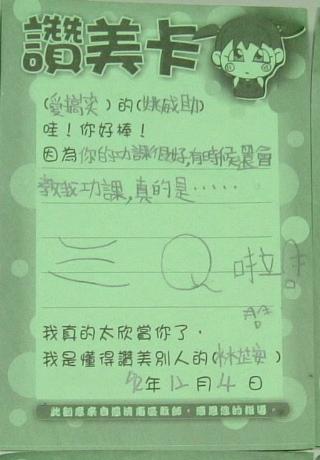 讚美卡
(愛搞笑)的(姚威助)
哇！你好棒！
因為你的功課很好,有時候還會
教我功課,真的是……
三Q啦!
我真的太欣當你了，
我是懂得讚美別人的(林 安)
年12月4日